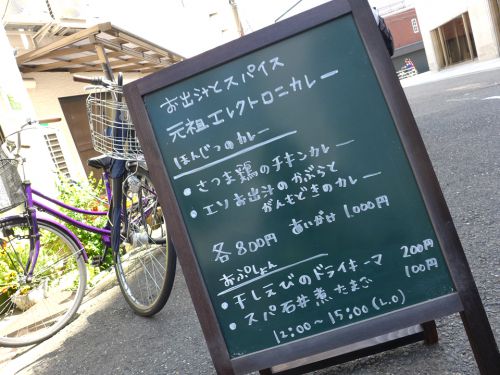 お出汁とスパイス
元祖エレクトロニカレー
ほんじつのカレー
・さつま鶏のチキンカレー
・エソお出汁のかぶらと
がんもどきのカレー
各800円 あいがけ 1000円
おぷしょん
・干しえびのドライキーマ 200円
・スパ石井煮たまご 100円
12:00〜15:00(L.O)